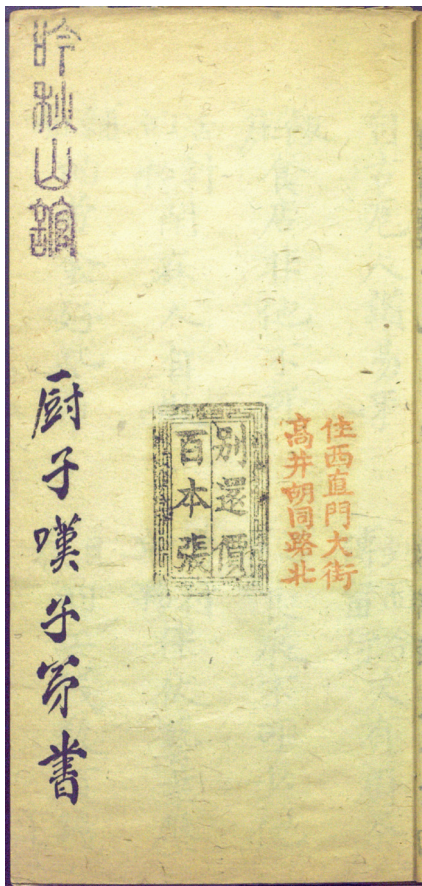 住西直門大街
高井胡同路北
別還價
百本張
吟秋山館
厨子嘆子弟書